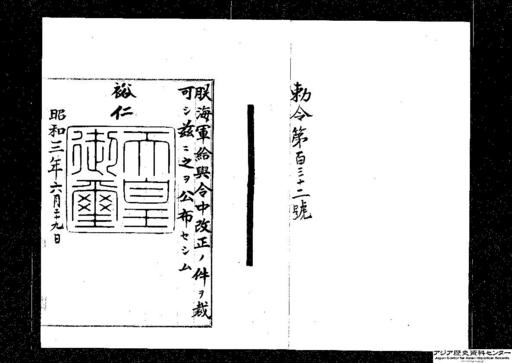 勅令第百三十二號
朕海軍給與令中改正ノ件ヲ裁
可シ茲ニ之ヲ公布セシム
裕仁
天皇
御璽
昭和三年六月二十九日
アジア歴史資料センター
Japan Center for Asian Historical Records